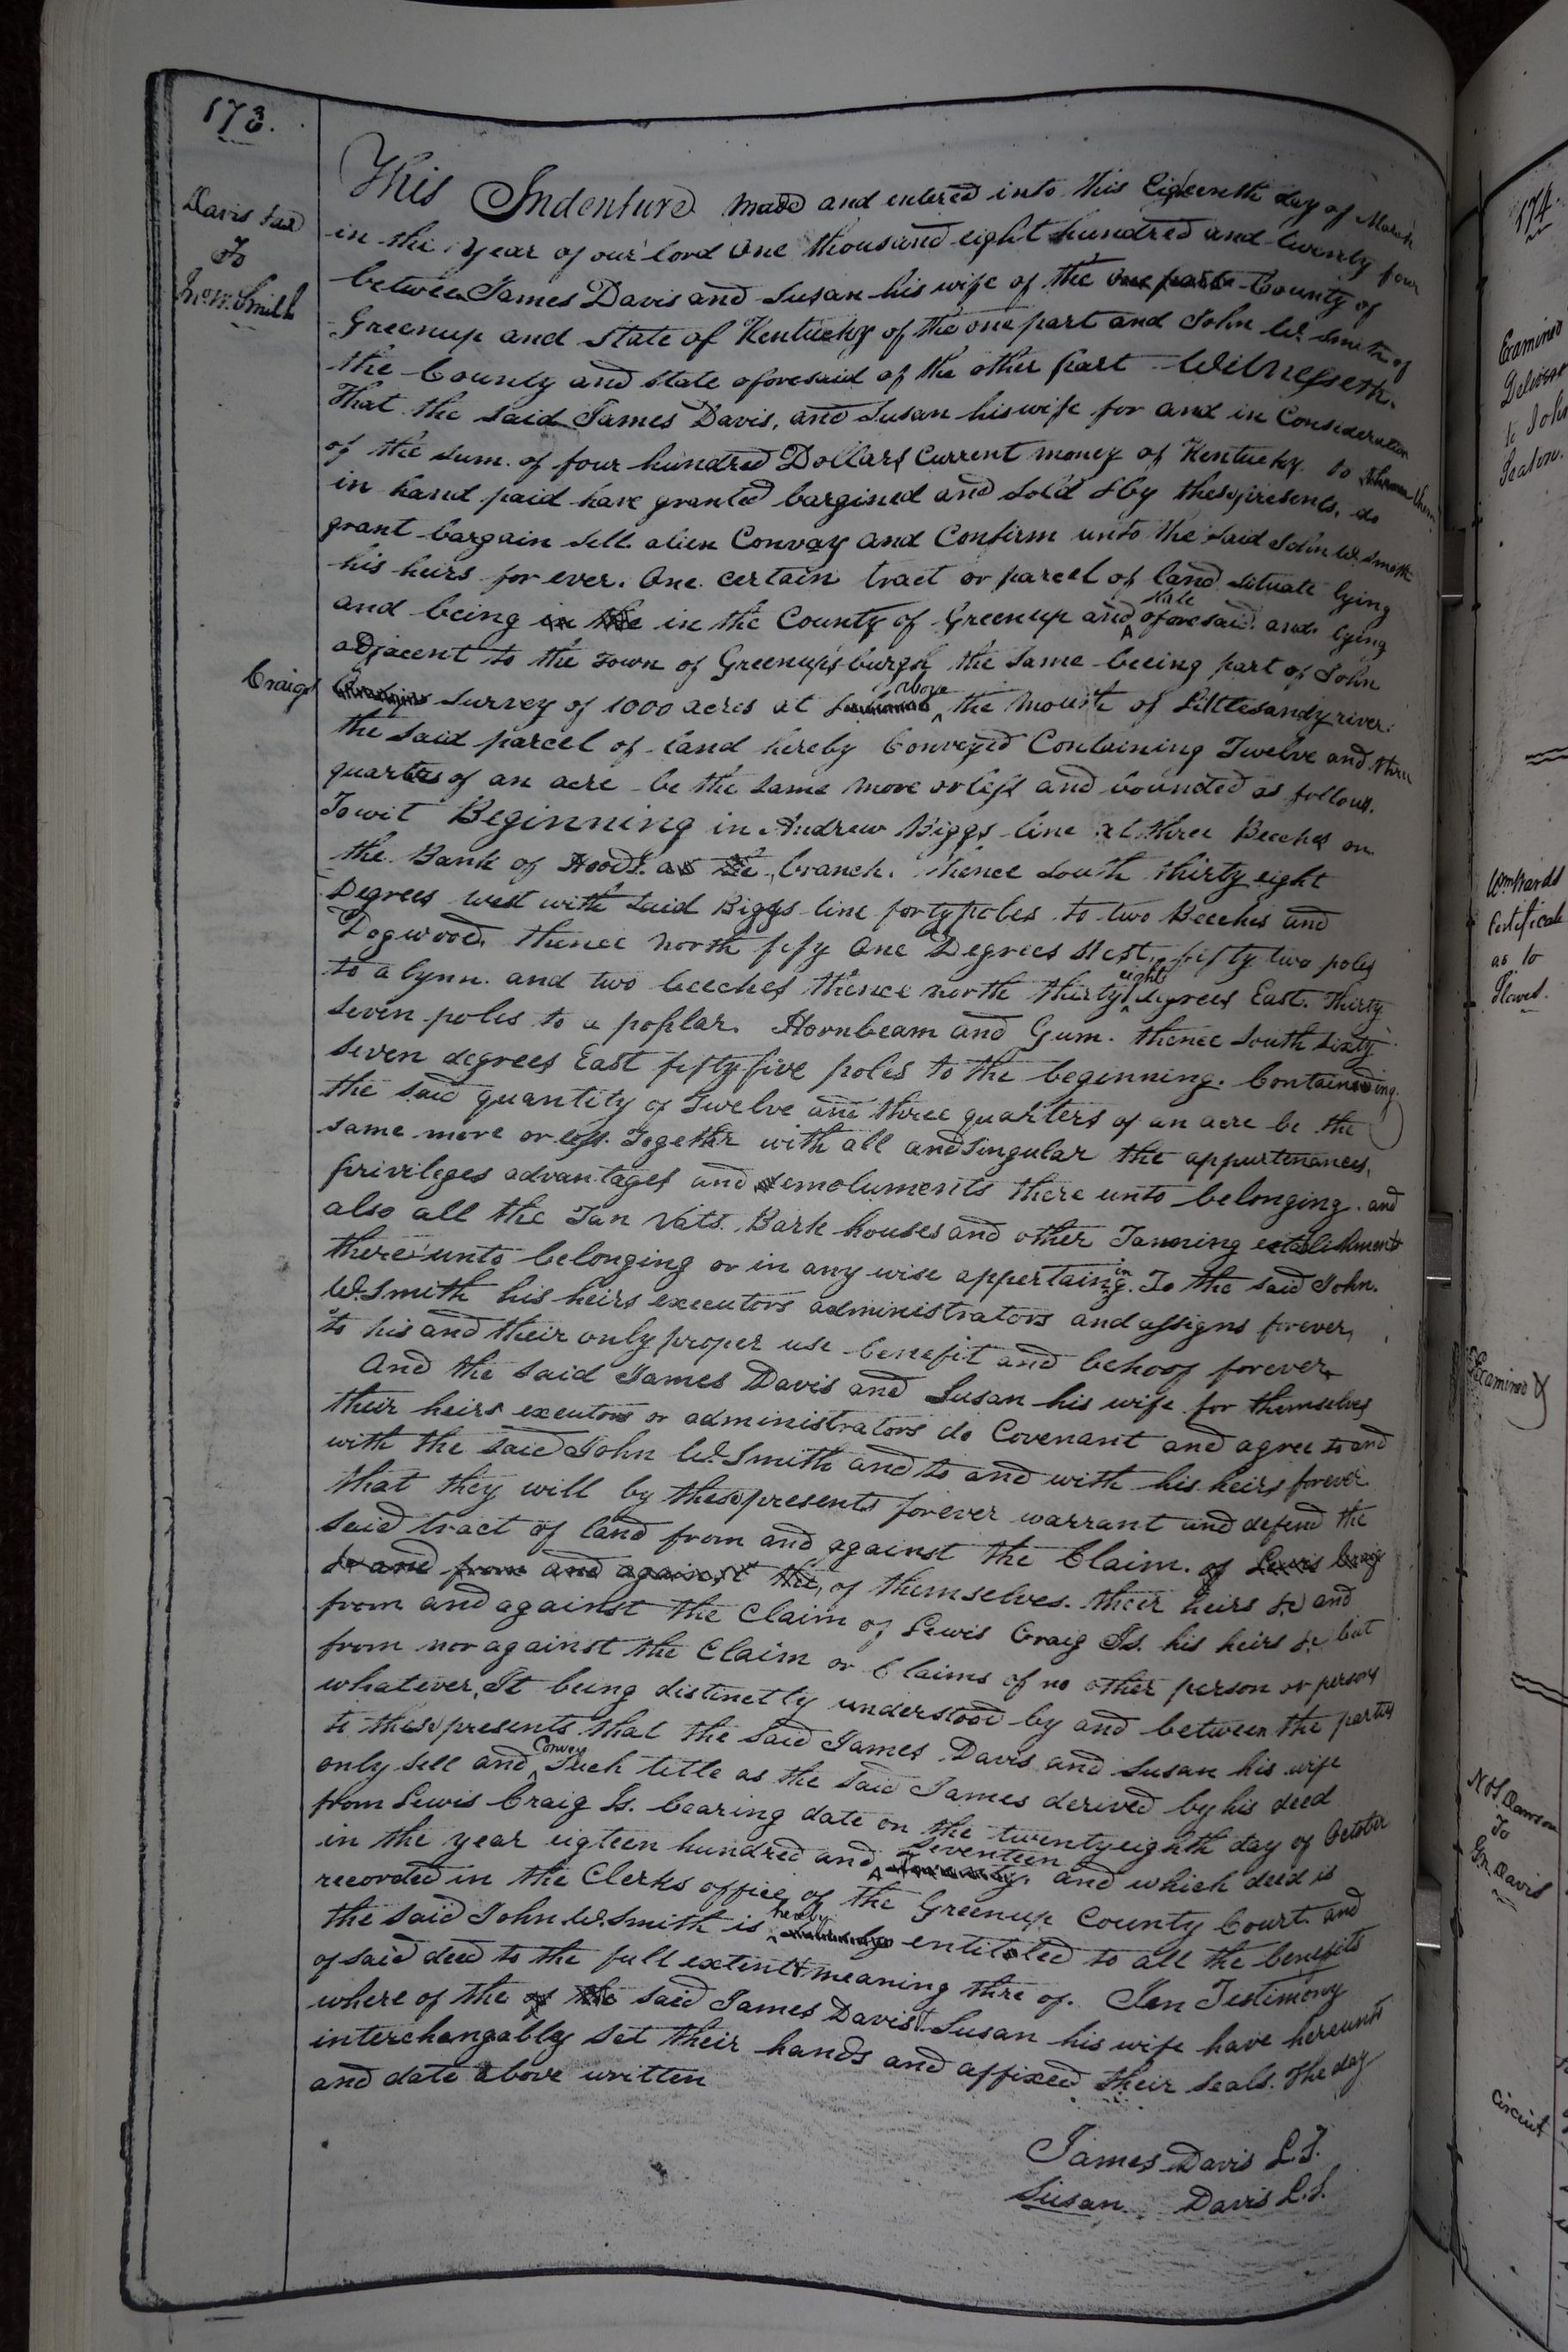 173.
Davis &al
To
Jno. W. Smith
This Indenture made and entered into this Eighteenth day of March
in the year of our lord one thousand eight hundred and twenty four
between James Davis and Susan his wife of the one part County of
Greenup and State of Kentucky of the one part and John W. Smith of
the County and State aforesaid of the other part Witnesseth.
That the said James Davis, and Susan his wife for and in Consideration
of the sum of four hundred Dollars Current money of Kentucky to them
in hand paid have granted bargined and sold & by these presents, do
grant bargain sell alien Convay and Confirm unto the said John W. Smith
his heirs for ever. One certain tract or parcel of land situate lying
and being in the in the County of Greenup and State aforesaid and lying
adjacent to the Town of Greenupsburgh the same being part of John
Craigs survey of 1000 acres at above the mouth of Littlesandy river:
the said parcel of land hereby Conveyed Containing Twelve and three
quarters of an acre be the same more or less and bounded as follows.
Towit Beginning in Andrew Biggs line at three Beeches on
the Bank of Hoods as the branch. thence South thirty eight
Degrees west with said Biggs line forty poles to two Beeches and
Dogwood, thence North fify one Degrees West, fifty two poles
to a lynn. and two beeches thence north thirty eight degrees East. Thirty
seven poles to a poplar. Hornbeam and Gum. thence South Sixty
seven degrees East fifty five poles to the beginning. Containing
the said quantity of Twelve and three quarters of an acre be the
same more or less. Together with all and singular the appurtenances,
privileges advantages and emoluments there unto belonging. and
also all the Tan Vats. Bark houses and other Tanning establishments
there unto belonging or in any wise appertaining. To the said John.
W. Smith his heirs executors administrators and assigns forever,
to his and their only proper use benefit and behoof forever
And the said James Davis and Susan his wife for themselves
their heirs executors or administrators do Covenant and agree to and
with the said John W. Smith and to and with his heirs forever
that they will by these presents forever warrant and defend the
said tract of land from and against the Claim. of Lewis Craig
&c and from and against the, of themselves. their heirs &c and
from and against the Claim of Lewis Craig Is. his heirs &c but
from nor against the Claim or Claims of no other person or persons
whatever, It being distinctly understood by and between the partys
to these presents that the said James Davis and Susan his wife
only sell and Convey Such title as the said James derived by his deed
from Lewis Craig Is. bearing date on the twenty eighth day of October
in the year eigteen hundred and Seventeen and which deed is
recorded in the Clerks office of the Greenup County Court. and
the said John W. Smith is hereby entitled to all the benefits
of said deed to the full extent & meaning there of. In Testimony
where of the of the said James Davis & Susan his wife have hereunto
interchangably set their hands and affixed their seals. The day
and date above written
James Davis L.S.
Susan Davis L.S.
174.
Examined
Delivered
to John
Seaton.
Wm Wards
Certificate
as to
Examined
To
Gn Davis
Circuit